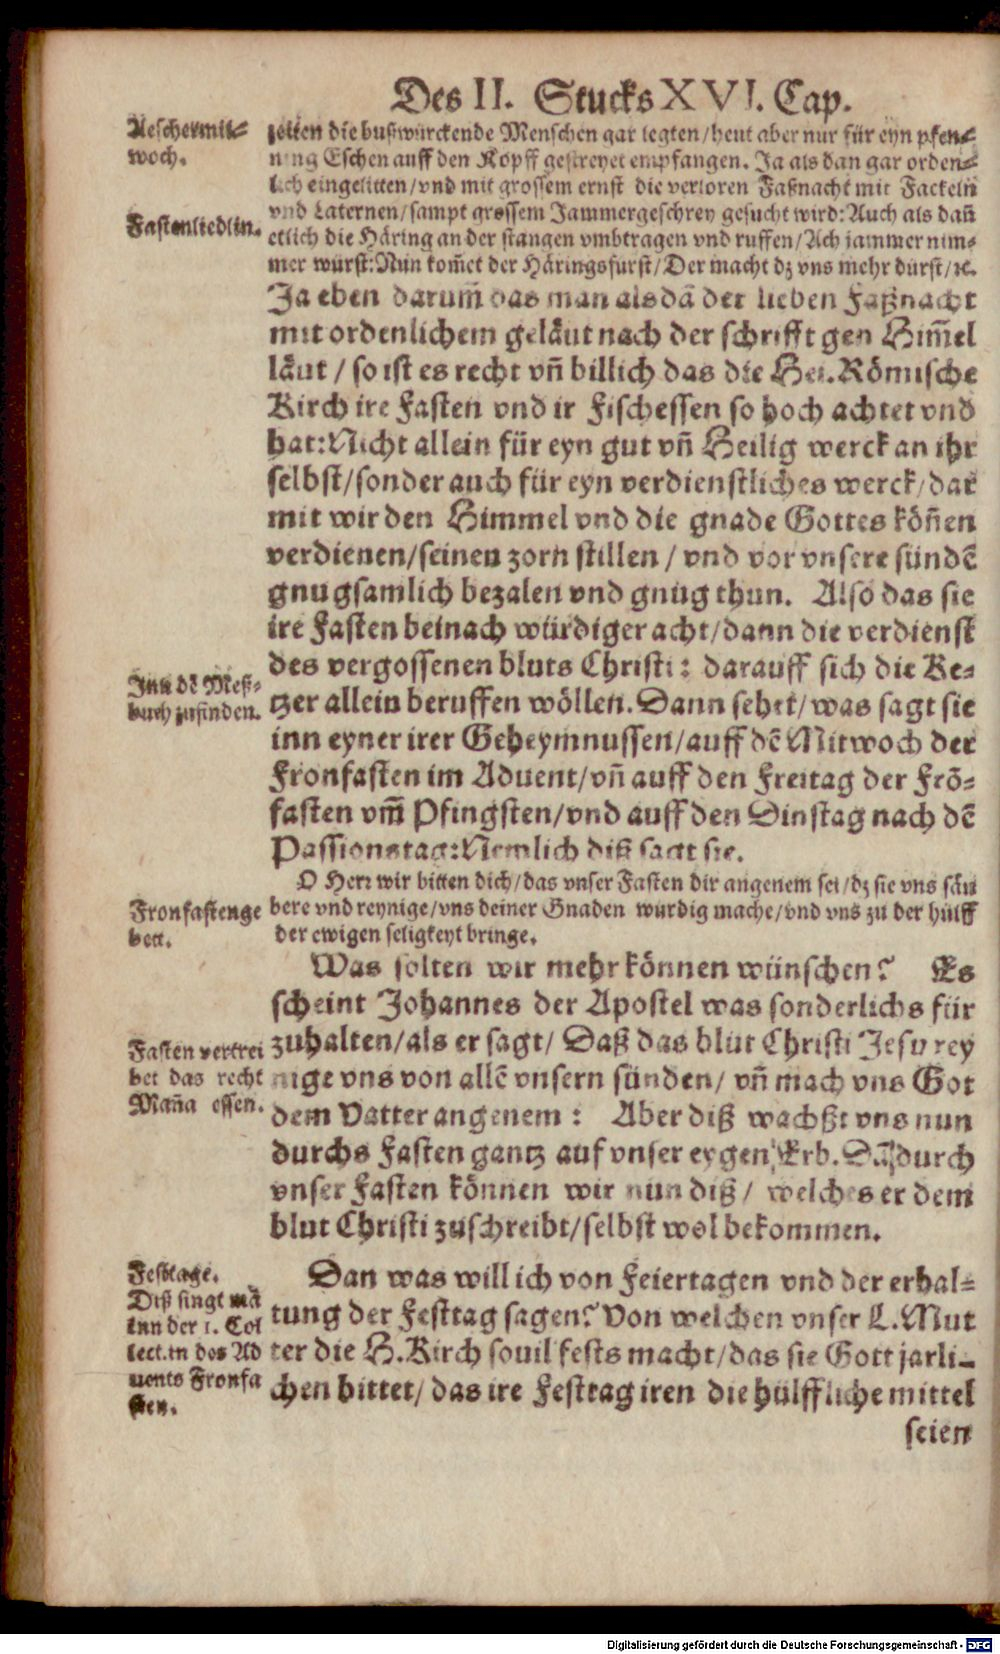 Des II. Stucks XVI. Cap.
Aeschermit=
woch.
zeiten die bußwürckende Menschen gar legten/heut aber nur für eyn pfen=
ning Eschen auff den Kopff gestreyet empfangen. Ja als dan gar orden=
lich eingelitten/vnd mit grossem ernst die verloren Faßnacht mit Fackeln
vnd Laternen/sampt grossem Jammergeschrey gesucht wird: Auch als dañ
Fastenliedlin.
etlich die Häring an der stangen vmbtragen vnd ruffen/Ach jammer nim=
mer wurst: Nun kom̃et der Häringsfurst/Der macht dz vns mehr dürst/ꝛc.
Ja eben darum̃ das man alsdã der lieben Faßnacht
mit ordenlichem geläut nach der schrifft gen Him̃el
läut/so ist es recht vñ billich das die Hei. Römische
Kirch ire Fasten vnd ir Fischessen so hoch achtet vnd
hat: Nicht allein für eyn gut vñ Heilig werck an ihr
selbst/sonder auch für eyn verdienstliches werck/dar
mit wir den Himmel vnd die gnade Gottes köñen
verdienen/seinen zorn stillen/vnd vor vnsere sündẽ
gnugsamlich bezalen vnd gnüg thun. Also das sie
ire Fasten beinach würdiger acht/dann die verdienst
des vergossenen bluts Christi: darauff sich die Ke=
Inn dẽ Meß=
buch zufinden.
tzer allein beruffen wöllen. Dann sehet/was sagt sie
inn eyner irer Geheymnussen/auff dẽ Mitwoch der
Fronfasten im Aduent/vñ auff den Freitag der Frõ=
fasten vm̃ Pfingsten/vnd auff den Dinstag nach dẽ
Passionstag: Nemlich diß sagt sie.
O Herr wir bitten dich/das vnser Fasten dir angenem sei/dz sie vns säu
Fronfastenge
bett.
bere vnd reynige/vns deiner Gnaden wurdig mache/vnd vns zu der hülff
der ewigen seligkeyt bringe.
Was solten wir mehr können wünschen? Es
scheint Johannes der Apostel was sonderlichs für
Fasten vertrei
bet das recht
Mañа essen.
zuhalten/als er sagt/Daß das blut Christi Jesu rey
nige vns von allẽ vnsern sünden/vñ mach vns Got
dem Vatter angenem: Aber diß wachßt vns nun
durchs Fasten gantz auf vnser eygen Erb. Dañ durch
vnser Fasten können wir nun diß/welches er dem
blut Christi zuschreibt/selbst wol bekommen.
Festtage.
Diß singt mã
inn der 1. Col
lect. in des Ad
uents Fronfa
sten.
Dan was will ich von Feiertagen vnd der erhal=
tung der Festtag sagen? Von welchen vnser L. Mut
ter die H. Kirch souil fests macht/das sie Gott jarli=
chen bittet/das ire Festtag iren die hülffliche mittel
seien
Digitalisierung gefördert durch die Deutsche Forschungsgemeinschaft - DFG